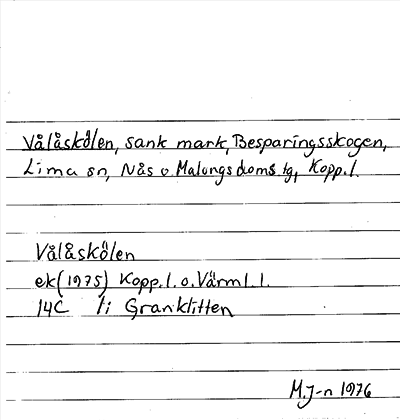 Vålåskölen, sank mark, Besparingsskogen,
Lima sn, Nås o Malungs doms tg, Kopp. l.
Vålåskölen
ek (1975) Kopp. l. o. Värml. l.
14C 1i Granklitten
M.J-n 1976